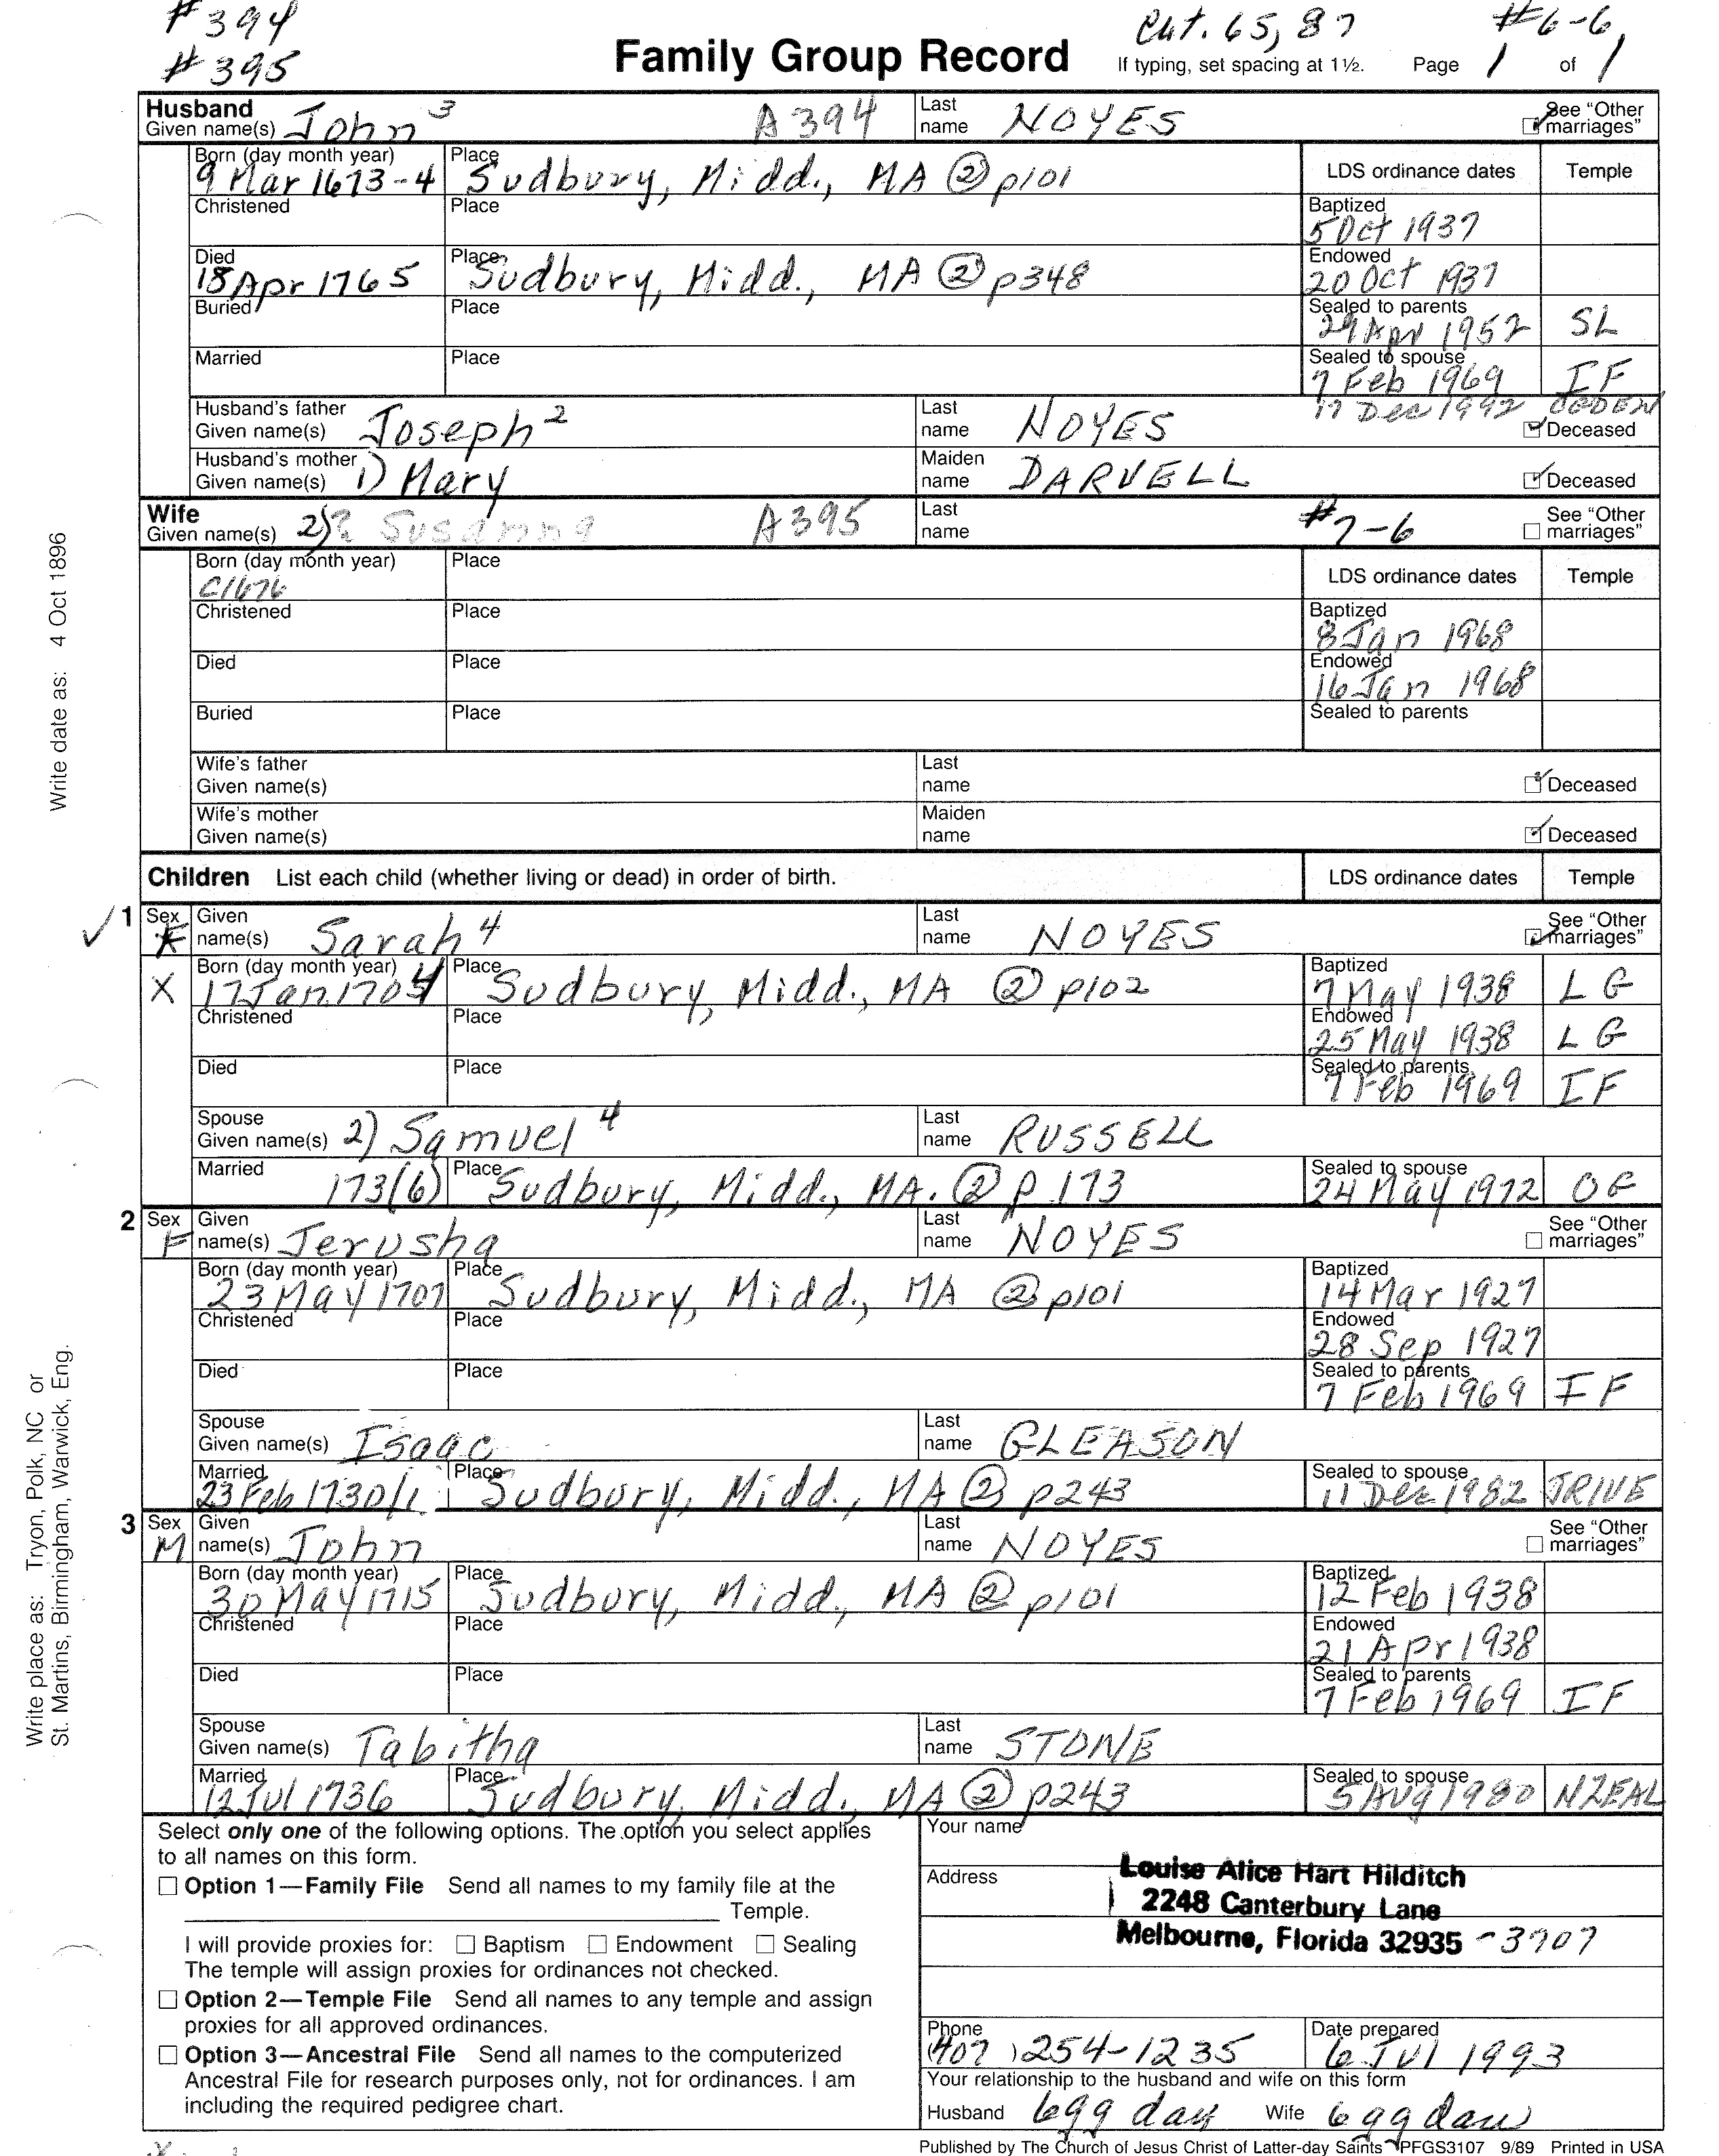 # 394 Cut. 65, 87 #6-6
# 395 Family Group Record If typing, set spacing at 1½. Page 1 of 1
Husband Given name(s) John 3 A394 Last name NOYES See "Other marriages"
Born (day month year) 9 Mar 1673-4 Place Sudbury, Midd., MA ② p101 LDS ordinance dates Temple
Christened Place Baptized 5 Oct 1937
Died 18 Apr 1765 Place Sudbury, Midd., MA ② p348 Endowed 20 Oct 1937
Buried Place Sealed to parents 29 Apr 1952 SL
Married Place Sealed to spouse 7 Feb 1969 IF
17 Dec 1992 OGDEN
Husband's father Given name(s) Joseph 2 Last name NOYES Deceased
Husband's mother Given name(s) 1) Mary Maiden name DARVELL Deceased
Wife Given name(s) 2) Susanna A395 Last name #7-6 See "Other marriages"
Born (day month year) C1676 Place LDS ordinance dates Temple
Christened Place Baptized 8 Jan 1968
Died Place Endowed 16 Jan 1968
Buried Place Sealed to parents
Wife's father Given name(s) Last name Deceased
Wife's mother Given name(s) Maiden name Deceased
Children List each child (whether living or dead) in order of birth. LDS ordinance dates Temple
1 Sex F Given name(s) Sarah 4 Last name NOYES See "Other marriages"
X Born (day month year) 17 Jan 1704 Place Sudbury, Midd., MA ② p102 Baptized 7 May 1938 LG
Christened Place Endowed 25 May 1938 LG
Died Place Sealed to parents 7 Feb 1969 IF
Spouse Given name(s) 2) Samuel 4 Last name RUSSELL
Married 173(6) Place Sudbury, Midd., MA. ② p 173 Sealed to spouse 24 May 1972 OG
2 Sex F Given name(s) Jerusha Last name NOYES See "Other marriages"
Born (day month year) 23 May 1707 Place Sudbury, Midd., MA ② p101 Baptized 14 Mar 1927
Christened Place Endowed 28 Sep 1927
Died Place Sealed to parents 7 Feb 1969 IF
Spouse Given name(s) Isaac Last name GLEASON
Married 23 Feb 1730/1 Place Sudbury, Midd., MA ② p243 Sealed to spouse 11 Dec 1982 JRIVE
3 Sex M Given name(s) John Last name NOYES See "Other marriages"
Born (day month year) 30 May 1715 Place Sudbury, Midd., MA ② p101 Baptized 12 Feb 1938
Christened Place Endowed 21 Apr 1938
Died Place Sealed to parents 7 Feb 1969 IF
Spouse Given name(s) Tabitha Last name STONE
Married 12 Jul 1736 Place Sudbury, Midd., MA ② p243 Sealed to spouse 5 Aug 1980 NZEAL
Select only one of the following options. The option you select applies
to all names on this form.
Option 1—Family File Send all names to my family file at the
Temple.
I will provide proxies for: Baptism Endowment Sealing
The temple will assign proxies for ordinances not checked.
Option 2—Temple File Send all names to any temple and assign
proxies for all approved ordinances.
Option 3—Ancestral File Send all names to the computerized
Ancestral File for research purposes only, not for ordinances. I am
including the required pedigree chart.
Your name
Address Louise Alice Hart Hilditch
2248 Canterbury Lane
Melbourne, Florida 32935 -3707
Phone (407) 254-1235 Date prepared 6 Jul 1993
Your relationship to the husband and wife on this form
Husband 6gg dau Wife 6gg dau
Published by The Church of Jesus Christ of Latter-day Saints PFGS3107 9/89 Printed in USA
Write date as: 4 Oct 1896
Write place as: Tryon, Polk, NC or
St. Martins, Birmingham, Warwick, Eng.